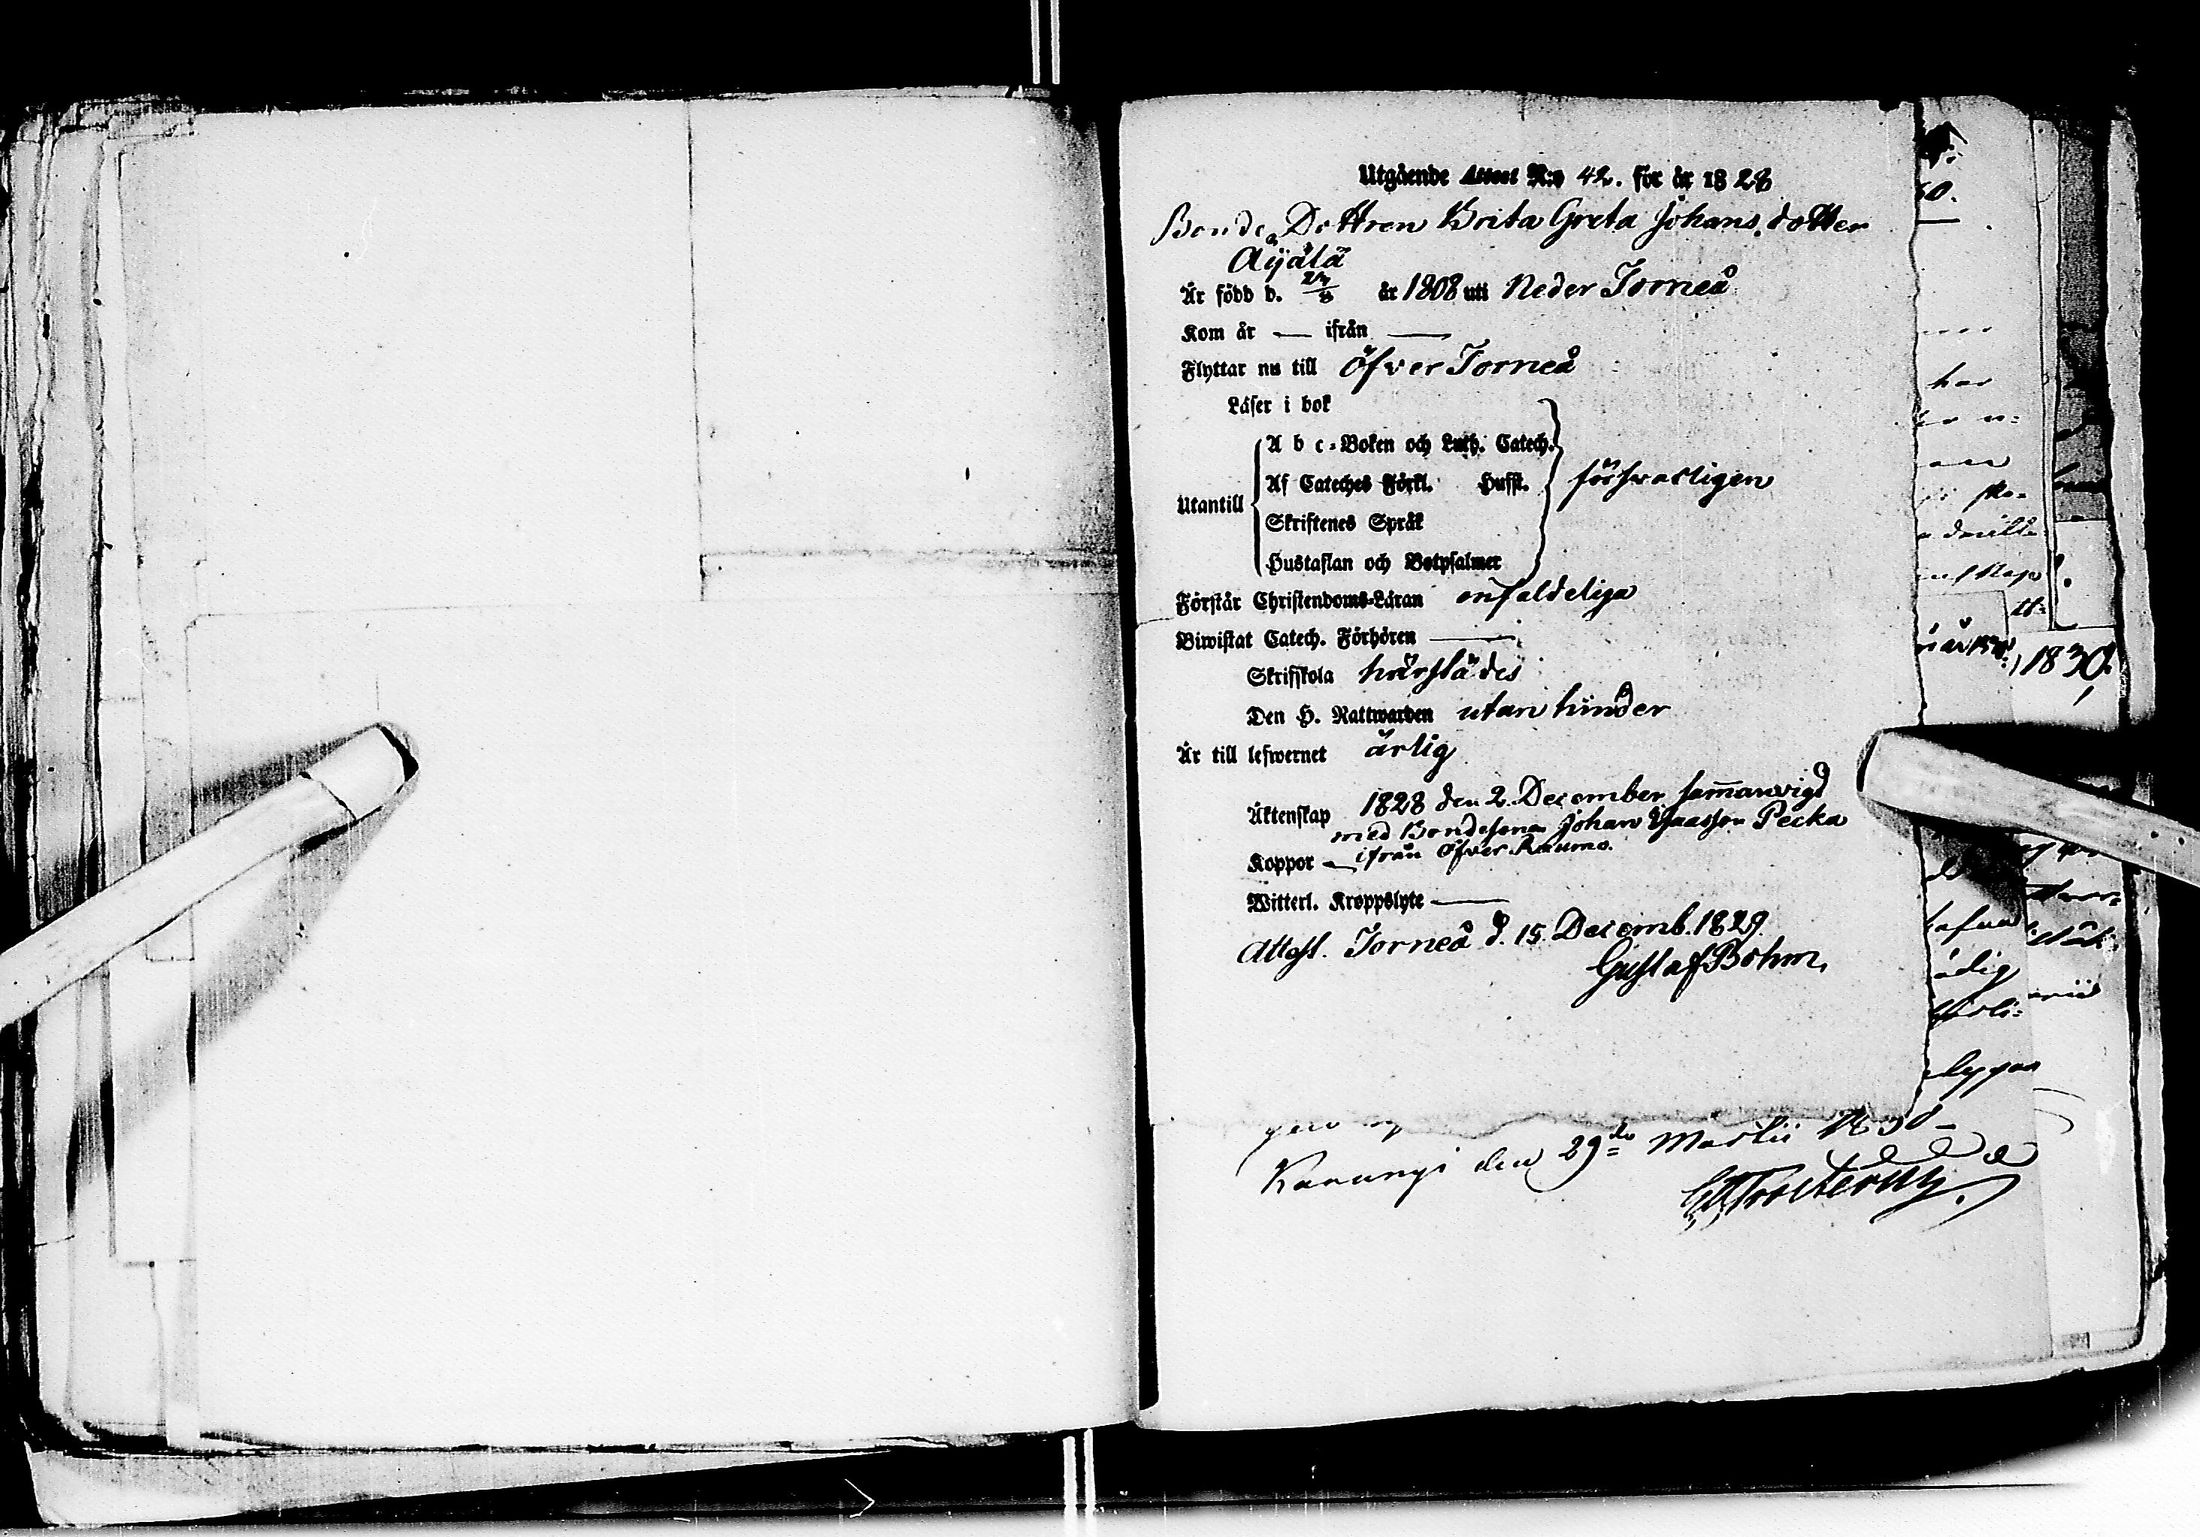 Utgående Attest N:o 42. för år 1828
Bonde Dottren Brita Greta Johans dotter
Äijälä
Är född d. 27/8 år 1808 uti Neder Torneå
Kom år — ifrån —
Flyttar nu till Öfver Torneå
Läser i bok
A b c-Boken och Luth. Catech.
Af Cateches Förkl. Husft. försvarligen
Utantill
Skriftenes Språk
Hustaflan och Botpsalmer
Förstår Christendoms-Läran enfaldeliga
Biwistat Catech. Förhören —
Skrifskola härstädes
Den H. Nattwarden utan hinder
Är till lefwernet ärlig
Äktenskap 1828 den 2. December sam̄anvigd
med Bondesonen Johan Pecka
ifrån Öfver Raumo.
Koppor —
Witterl. Kroppslyte —
Attest. Torneå d. 15. Decemb. 1829.
Gustaf Bohm.
Karungi den 29de Martii
har
ädig
1830.